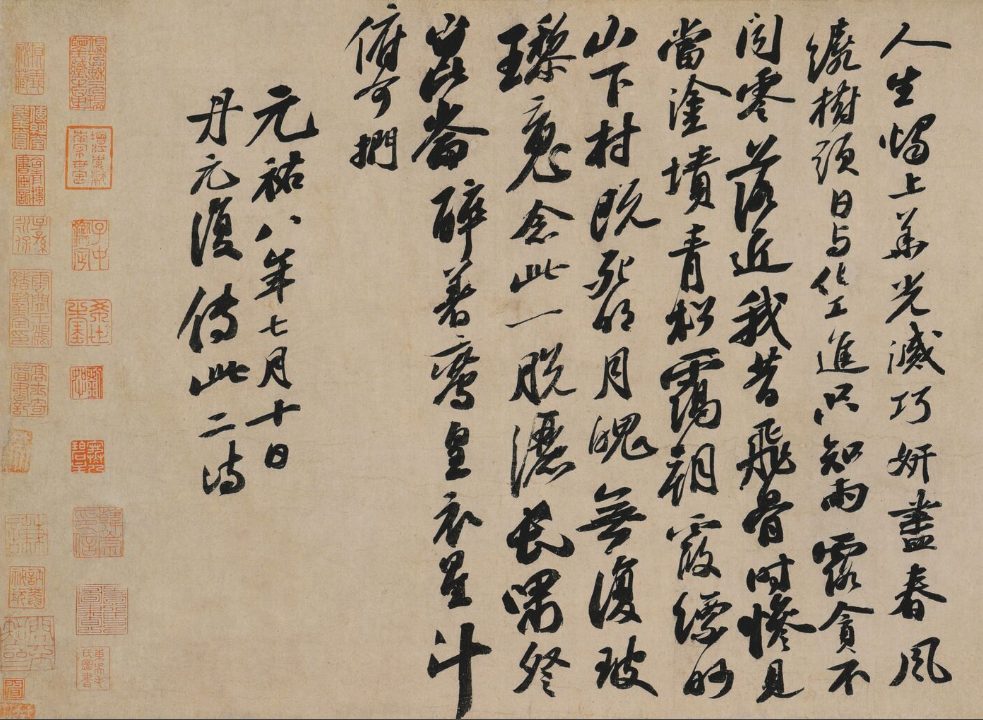 人生燭上華光滅巧妍盡春風
繞樹頭日与化工進只知雨露貪不
聞零落近我昔飛骨時慘見
當塗墳青松靄朝霞縹眇
山下村既死明月魄無復玻
瓈魂念此一脫灑長嘯登
崑崙醉著鸞皇衣星斗
俯可捫
元祐八年七月十日
丹元復傳此二詩